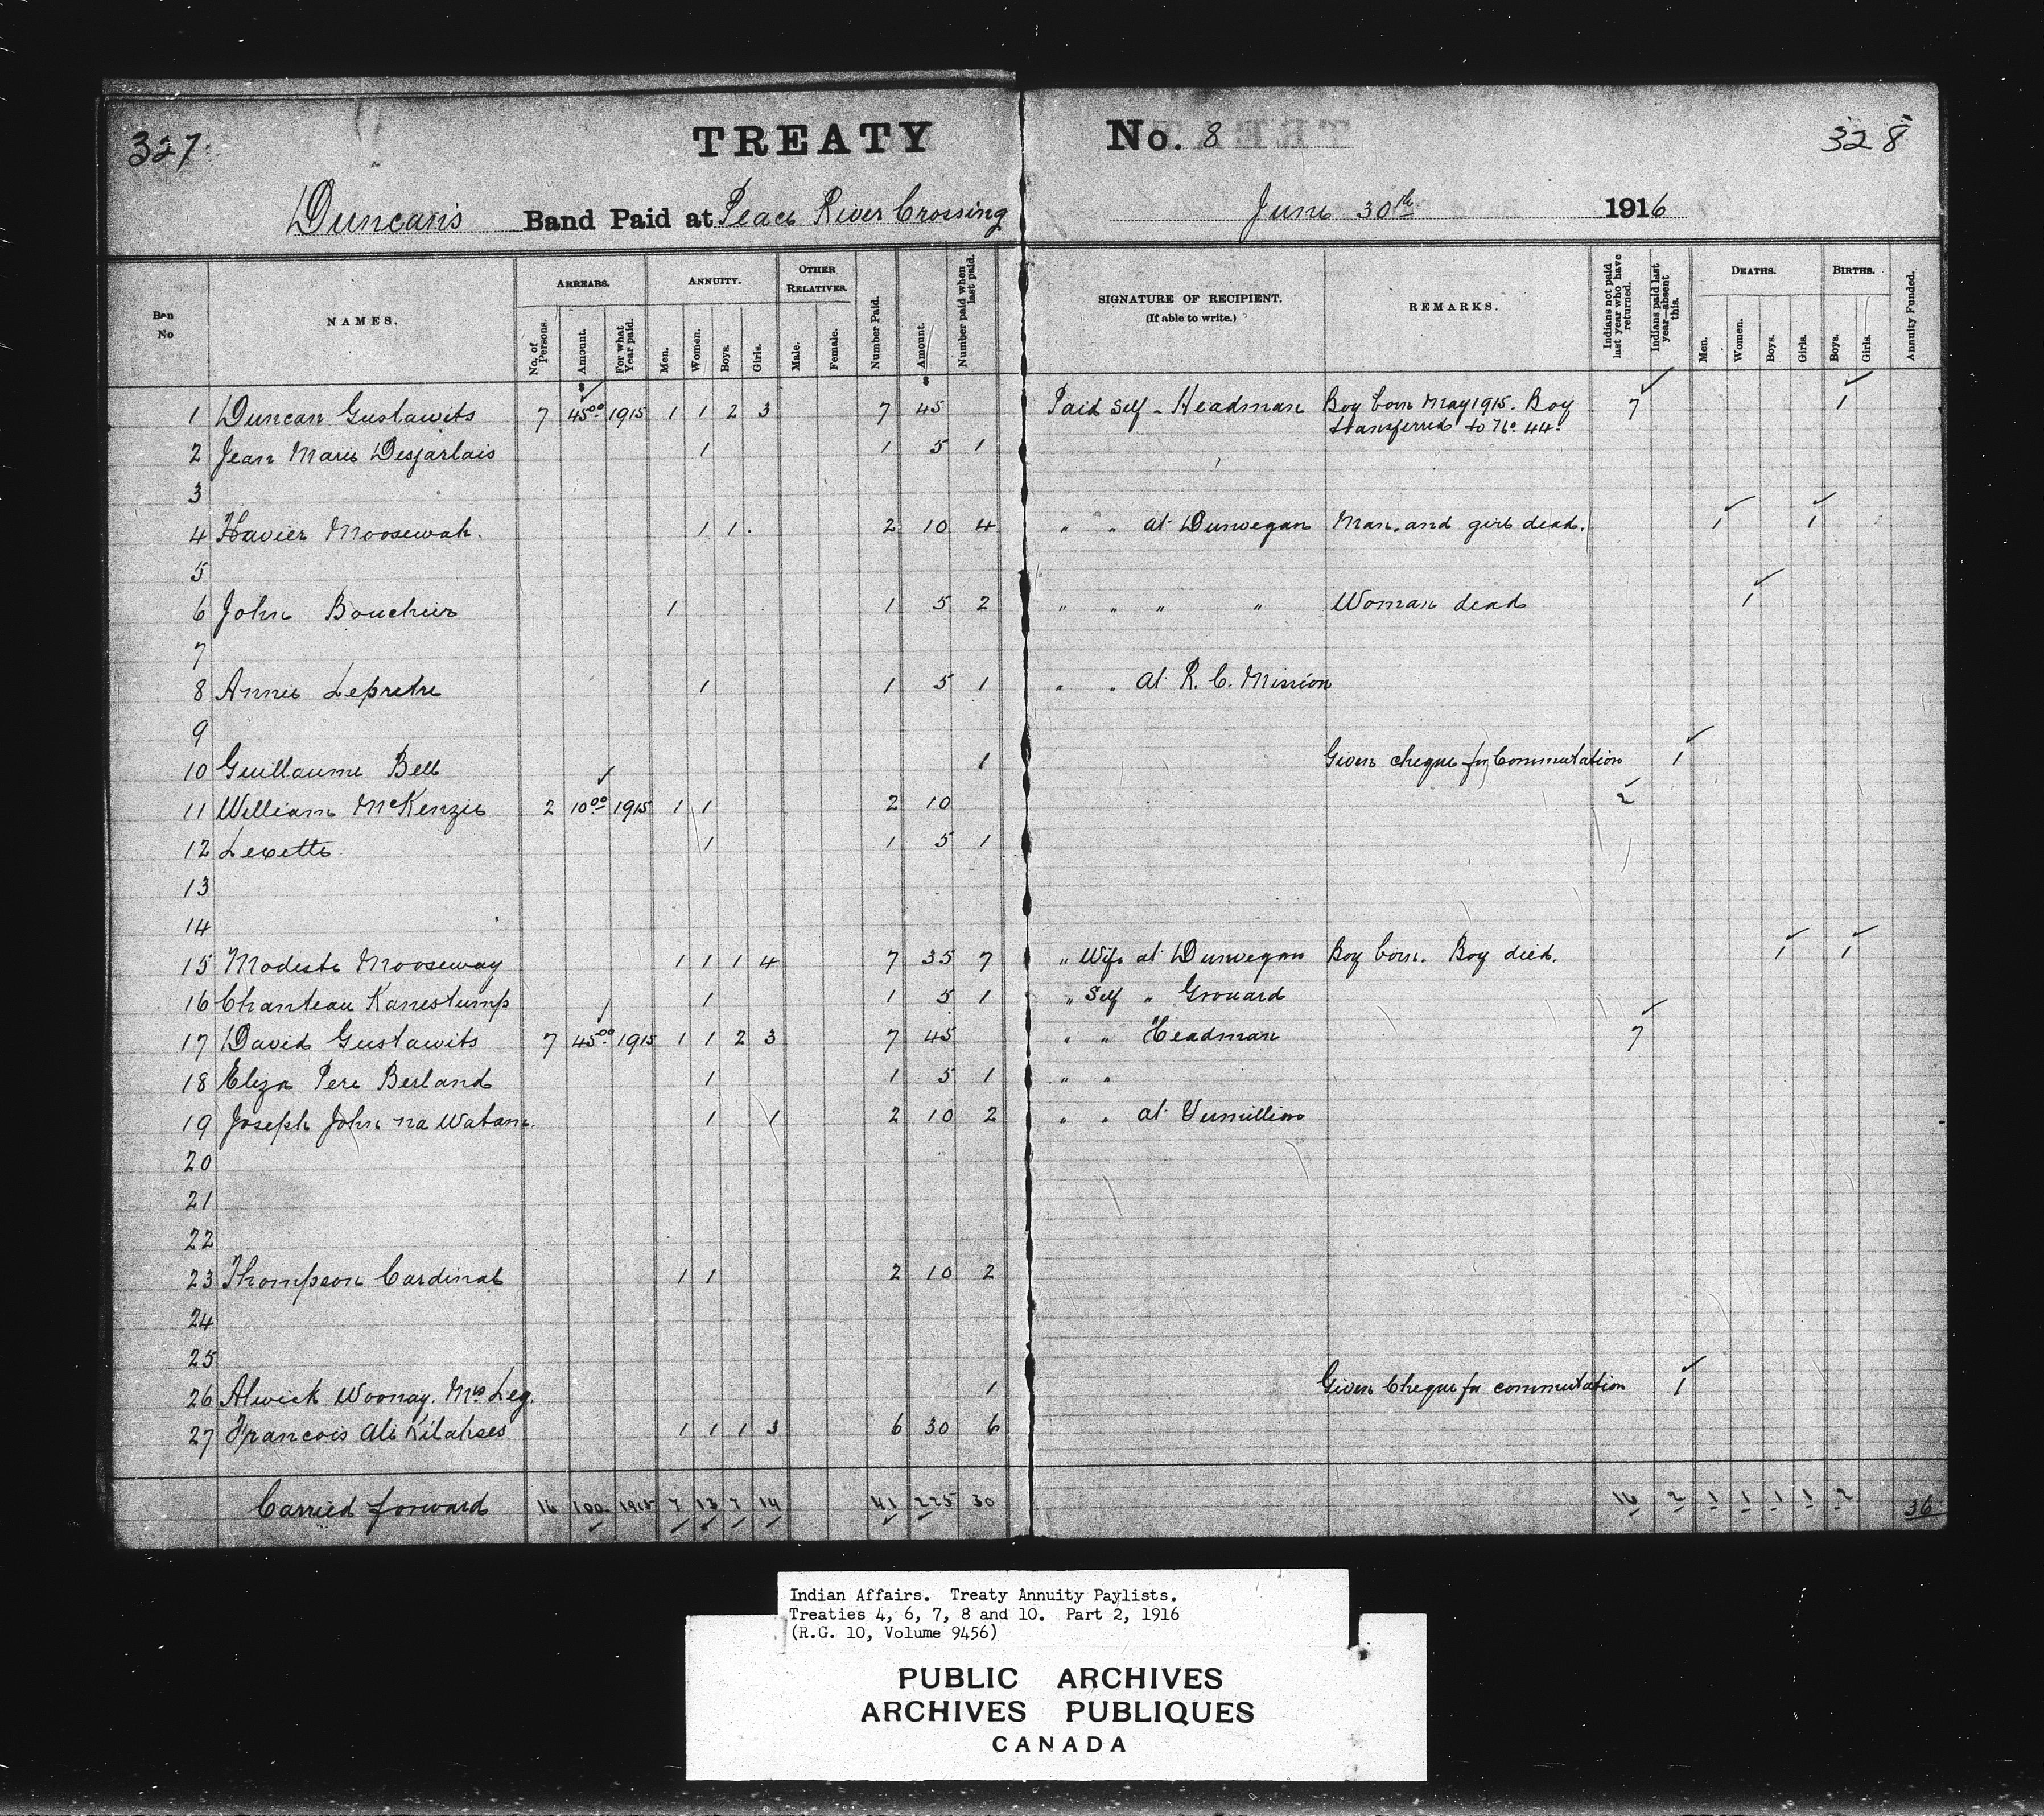 327 TREATY No. 8 328
Duncan's Band Paid at Peace River Crossing June 30th 1916
Ban No
NAMES.
ARREARS.
No. of Persons.
Amount.
For what Year paid.
ANNUITY.
Men.
Women.
Boys.
Girls.
OTHER RELATIVES.
Male.
Female.
Number Paid.
Amount.
Number paid when last paid.
SIGNATURE OF RECIPIENT.
(If able to write.)
REMARKS.
Indians not paid last year who have returned.
Indians paid last year—absent this.
DEATHS.
Men.
Women.
Boys.
Girls.
BIRTHS.
Boys.
Girls.
Annuity Funded.
1 Duncan Gustawits 7 45.00 1915 1 1 2 3 7 45 Paid Self - Headman Boy born May 1915. Boy 7 1
transferred to No. 44.
2 Jean Marie Desjarlais 1 1 5 1
3
4 Xavier Moosewah. 1 1. 2 10 4 " " at Dunvegan Man. and girl dead. 1 1
5
6 John Boucher 1 1 5 2 " " " " Woman dead 1
7
8 Annie Lepretre 1 1 5 1 " " at R. C. Mission
9
10 Guillaume Bell 1 Given cheque for Commutation 1
11 William McKenzie 2 10.00 1915 1 1 2 10 2
12 Lexette 1 1 5 1
13
14
15 Modeste Mooseway 1 1 1 4 7 35 7 " Wife at Dunvegan Boy born. Boy died. 1 1
16 Chanteau Kanestump 1 1 5 1 " Self " Grouard
17 David Gustawits 7 45.00 1915 1 1 2 3 7 45 " " Headman 7
18 Eliza Pere Berland 1 1 5 1 " "
19 Joseph John na Watam. 1 1 2 10 2 " " at Vermillion
20
21
22
23 Thompson Cardinal 1 1 2 10 2
24
25
26 Alwick Woonay. Mrs Leg. 1 Given Cheque for commutation 1
27 Francois Ali Kilahses 1 1 1 3 6 30 6
Carried forward 16 100. 1915 7 13 7 14 41 225 30 16 2 1 1 1 1 2 36
Indian Affairs. Treaty Annuity Paylists.
Treaties 4, 6, 7, 8 and 10. Part 2, 1916
(R.G. 10, Volume 9456)
PUBLIC ARCHIVES
ARCHIVES PUBLIQUES
CANADA